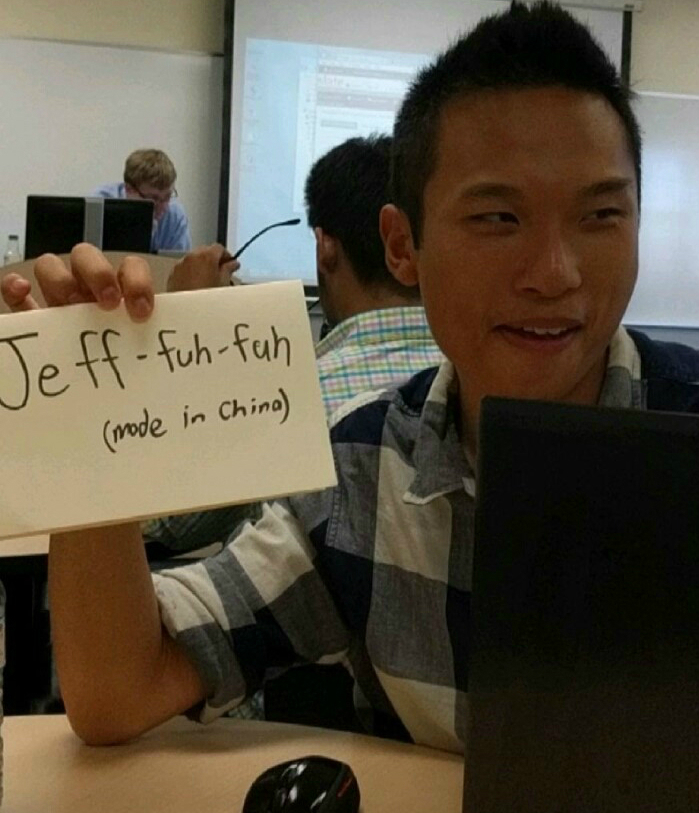 Jeff-fuh-fuh
(made in China)